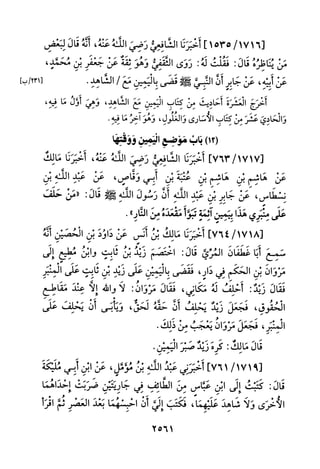 [١٥٣٥/١٧١٦] أَخْبَرَنَا الشَّافِعِيُّ رَضِيَ اللَّهُ عَنْهُ، أَنَّهُ قَالَ لِبَعْضِ
مَنْ يُنَاظِرُهُ قَالَ: فَقُلْتُ لَهُ: رَوَى الثَّقَفِيُّ وَهُوَ ثِقَةٌ عَنْ جَعْفَرِ بْنِ مُحَمَّدٍ،
عَنْ أَبِيْهِ، عَنْ جَابِرٍ أَنَّ النَّبِيَّ ﷺ قَضَى بِالْيَمِينِ مَعَ / الشَّاهِدِ. [٢٣١/ب]
أَخْرَجَ الْعَشَرَةَ أَحَادِيثَ مِنْ كِتَابِ الْيَمِينِ مَعَ الشَّاهِدِ، وَهِيَ أَوَّلُ مَا فِيهِ،
وَالْحَادِيَ عَشَرَ مِنْ كِتَابِ الْأُسَارَى وَالْغُلُولِ، وَهُوَ آخِرُ مَا فِيهِ.
(١٢) بَابُ مَوْضِعِ الْيَمِينِ وَوَقْتِهَا
[٧٦٣/١٧١٧] أَخْبَرَنَا الشَّافِعِيُّ رَضِيَ اللَّهُ عَنْهُ، أَخْبَرَنَا مَالِكٌ
عَنْ هَاشِمِ بْنِ هَاشِمِ بْنِ عُتْبَةَ بْنِ أَبِي وَقَّاصٍ، عَنْ عَبْدِ اللَّهِ بْنِ
نِسْطَاسٍ، عَنْ جَابِرِ بْنِ عَبْدِ اللَّهِ أَنَّ رَسُولَ اللَّهِ ﷺ قَالَ: «مَنْ حَلَفَ
عَلَى مِنْبَرِي هَذَا بِيَمِينٍ آثِمَةٍ تَبَوَّأَ مَقْعَدَهُ مِنَ النَّارِ».
[٧٦٤/١٧١٨] أَخْبَرَنَا مَالِكُ بْنُ أَنَسٍ عَنْ دَاوُدَ بْنِ الْحُصَيْنِ أَنَّهُ
سَمِعَ أَبَا غَطَفَانَ الْمُرِّيَّ قَالَ: اخْتَصَمَ زَيْدُ بْنُ ثَابِتٍ وَابْنُ مُطِيعٍ إِلَى
مَرْوَانَ بْنِ الْحَكَمِ فِي دَارٍ، فَقَضَى بِالْيَمِيْنِ عَلَى زَيْدِ بْنِ ثَابِتٍ عَلَى الْمِنْبَرِ
فَقَالَ زَيْدٌ: أَحْلِفُ لَهُ مَكَانِي، فَقَالَ مَرْوَانُ: لَا وَاللهِ إِلَّا عِنْدَ مَقَاطِعِ
الْحُقُوقِ، فَجَعَلَ زَيْدٌ يَحْلِفُ أَنَّ حَقَّهُ لَحَقٌّ، وَيَأْبَى أَنْ يَحْلِفَ عَلَى
الْمِنْبَرِ، فَجَعَلَ مَرْوَانُ يَعْجَبُ مِنْ ذَلِكَ.
قَالَ مَالِكٌ: كَرِهَ زَيْدٌ صَبْرَ الْيَمِيْنِ.
[٧٦١/١٧١٩] أَخْبَرَنِي عَبْدُ اللَّهِ بْنُ مُؤَمَّلٍ، عَنْ ابْنِ أَبِي مُلَيْكَةَ
قَالَ: كَتَبْتُ إِلَى ابْنِ عَبَّاسٍ مِنَ الطَّائِفِ فِي جَارِيَتَيْنِ ضَرَبَتْ إِحْدَاهُمَا
الْأُخْرَى وَلَا شَاهِدَ عَلَيْهِمَا، فَكَتَبَ إِلَيَّ أَنْ احْبِسْهُمَا بَعْدَ الْعَصْرِ ثُمَّ اقْرَأْ
٢٥٦١